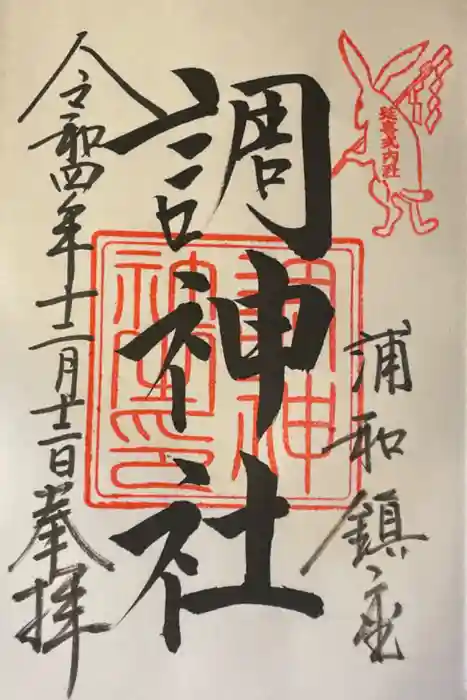 延喜式内社
浦和鎮座
調神社
調神
社之印
令和四年十二月廿二日
奉拝